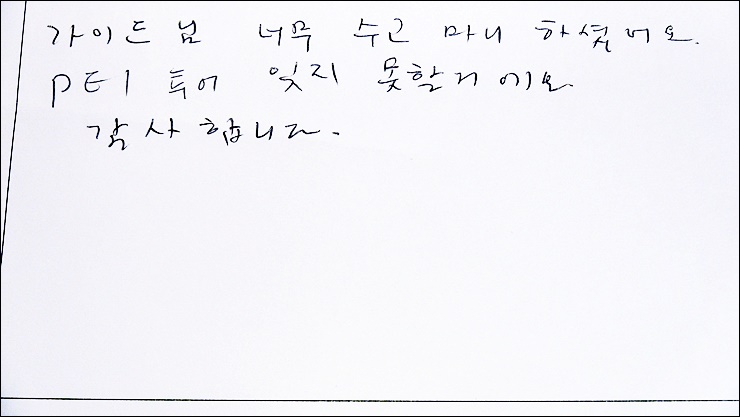 가이드님 너무 수고 마니 하셨어요.
PEI 투어 잊지 못할거에요
감사합니다.